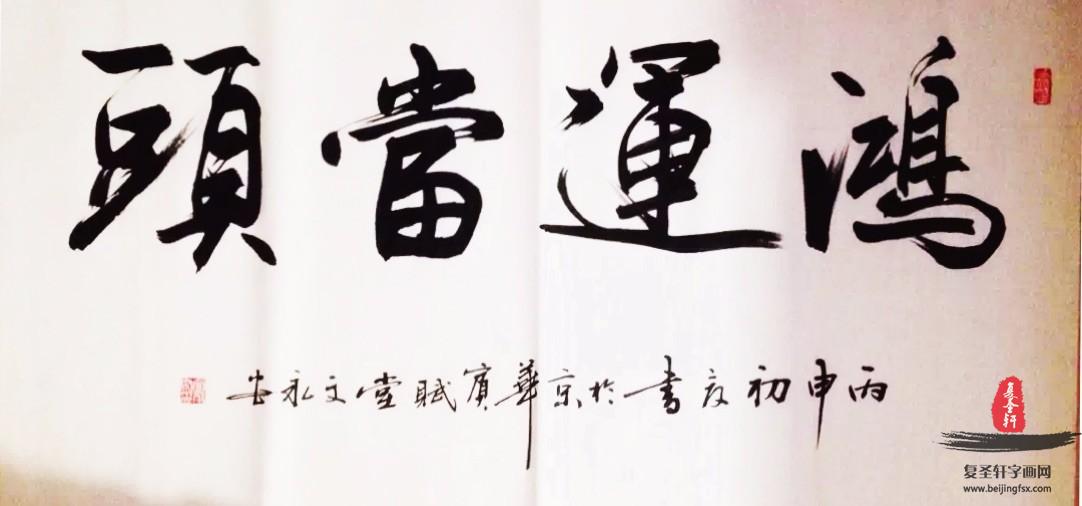 鴻運當頭
丙申初夏書於京華賓賦堂文永安
复圣轩
复圣轩字画网
www.beijingfsx.com